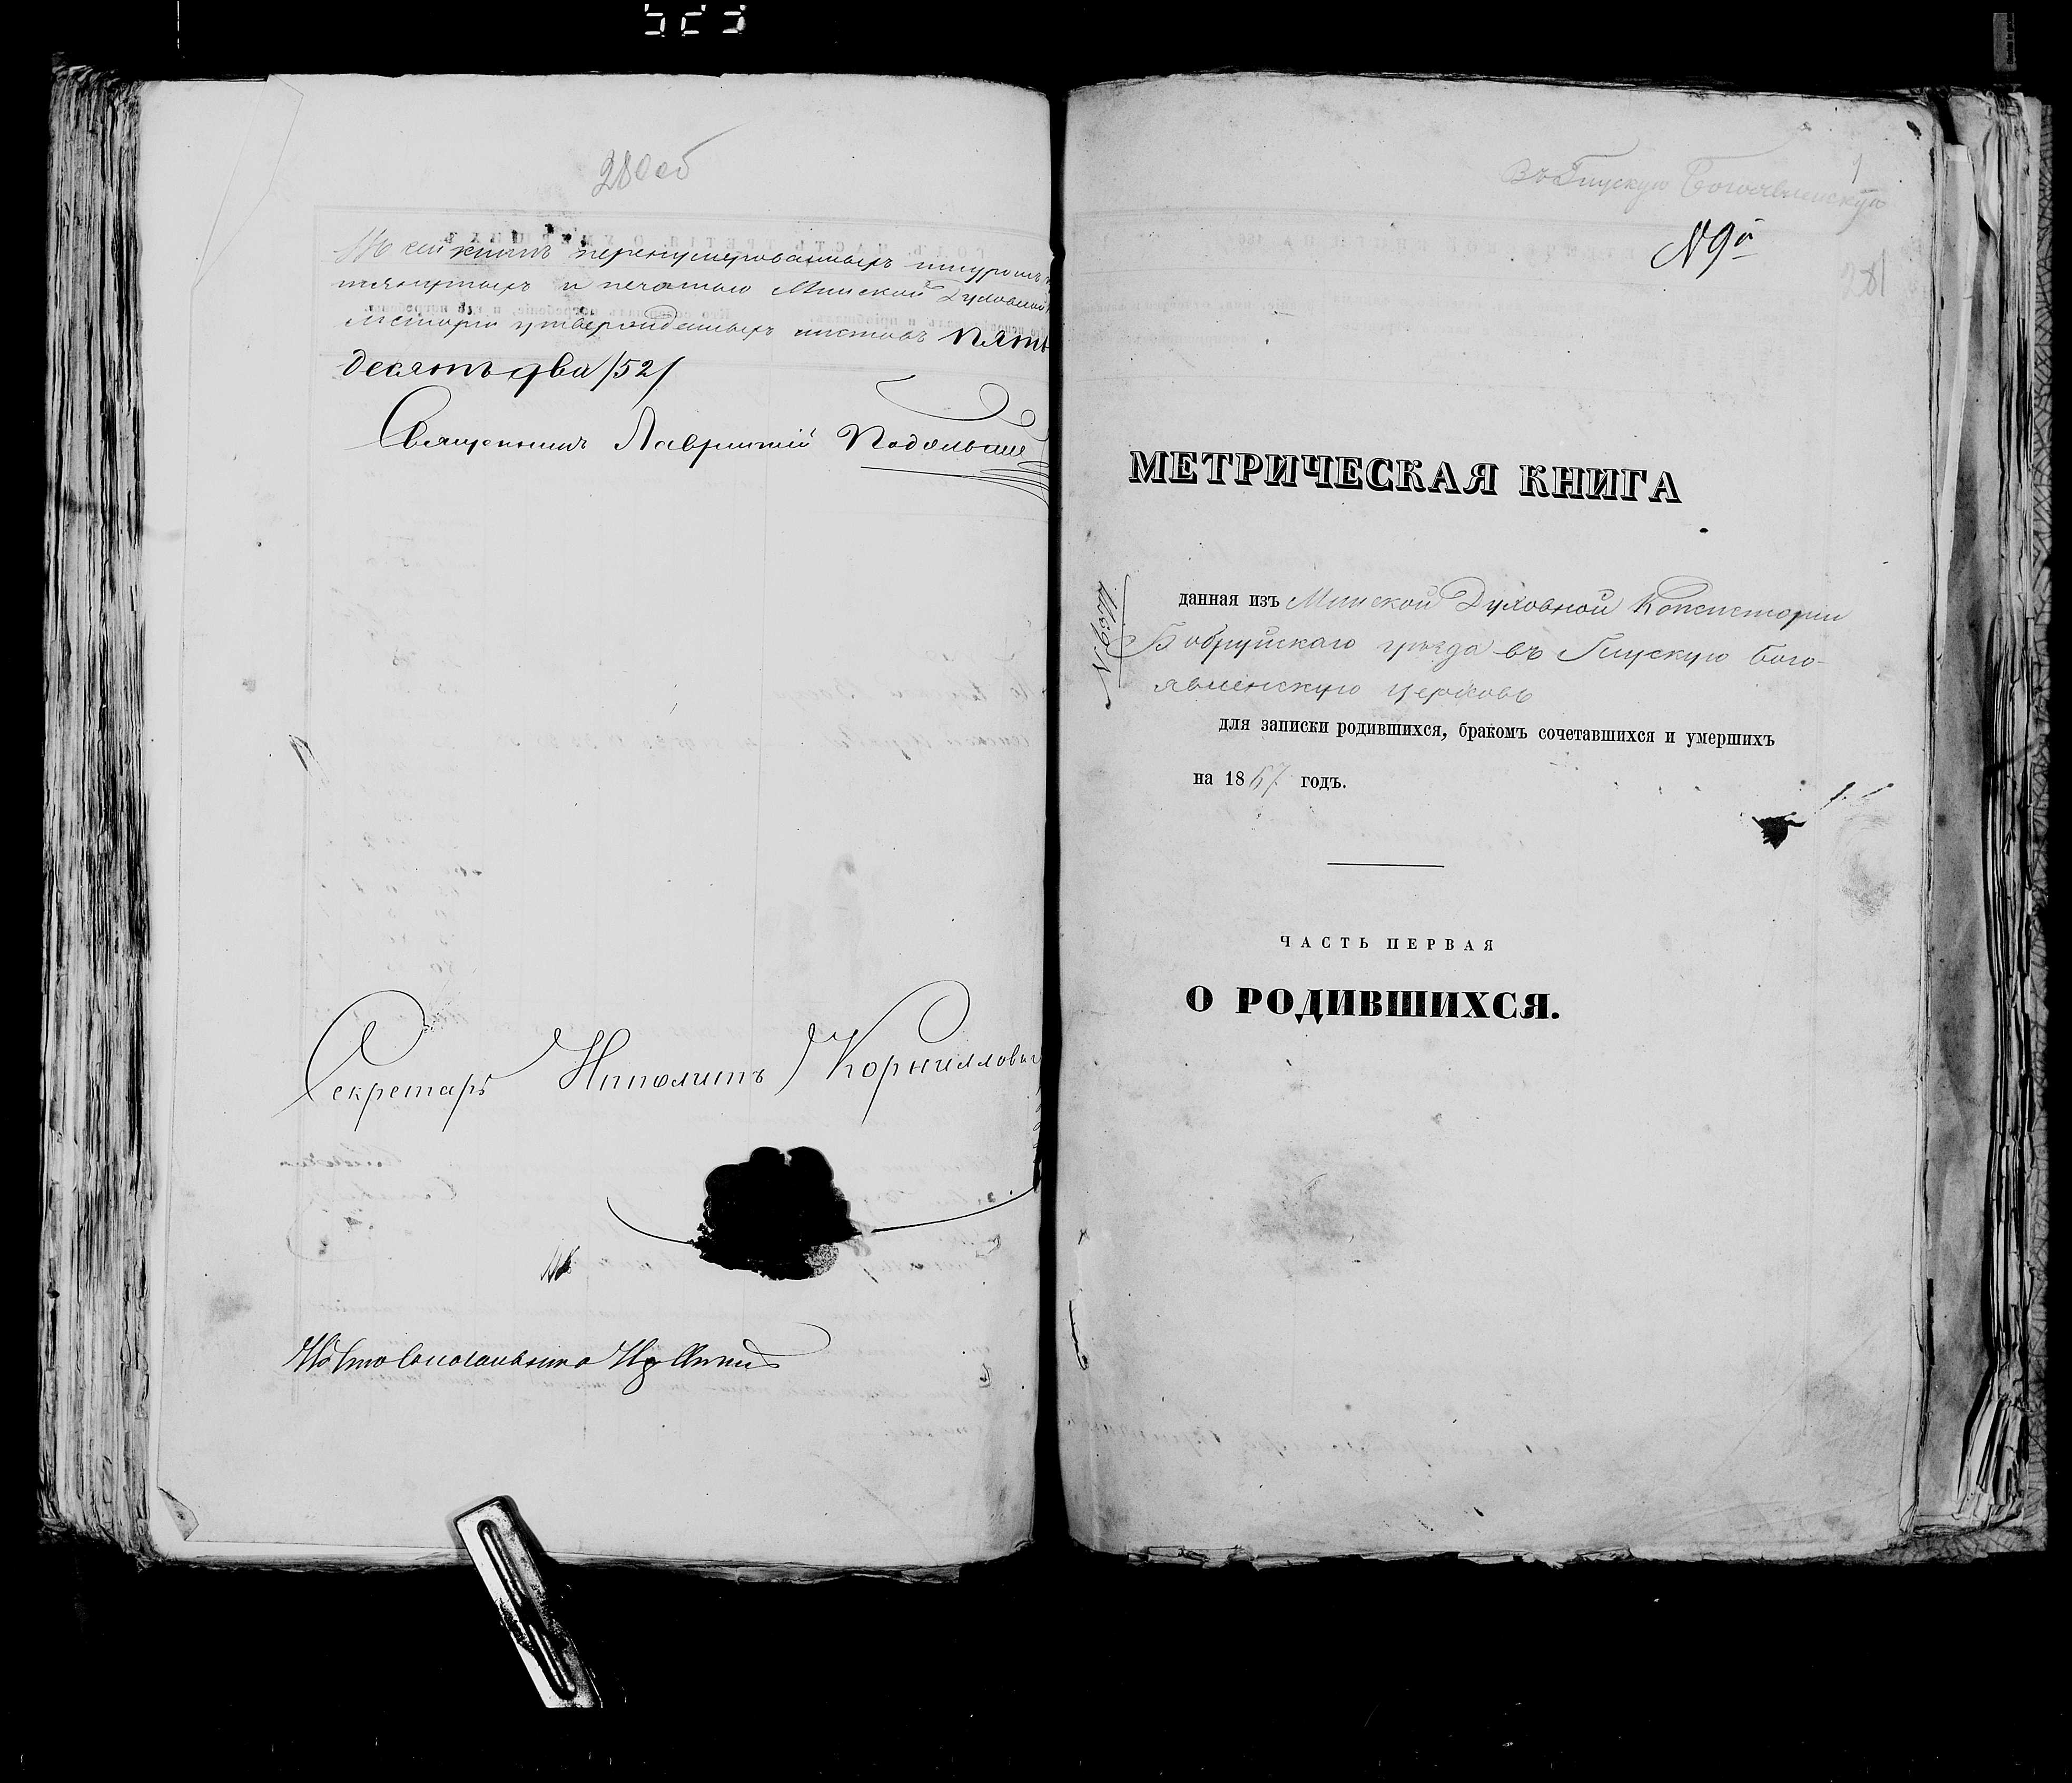 280об
Въ сей книгѣ перенумерованныхъ шнуромъ
тянутыхъ и печатью Минской Духовной
систоріи утвержденныхъ листовъ Пять
десятъ два /52/
Священникъ Лаврентій
Секретарь Ипполитъ Корниллович
Въ Глускую Богоявленскую
1
N 9й
281
МЕТРИЧЕСКАЯ КНИГА
данная изъ Минской Духовной Консисторіи
Бобруйскаго уѣзда въ Глускую Бого-
явленскую церковь
для записки родившихся, бракомъ сочетавшихся и умершихъ
на 1867 годъ.
ЧАСТЬ ПЕРВАЯ
О РОДИВШИХСЯ.